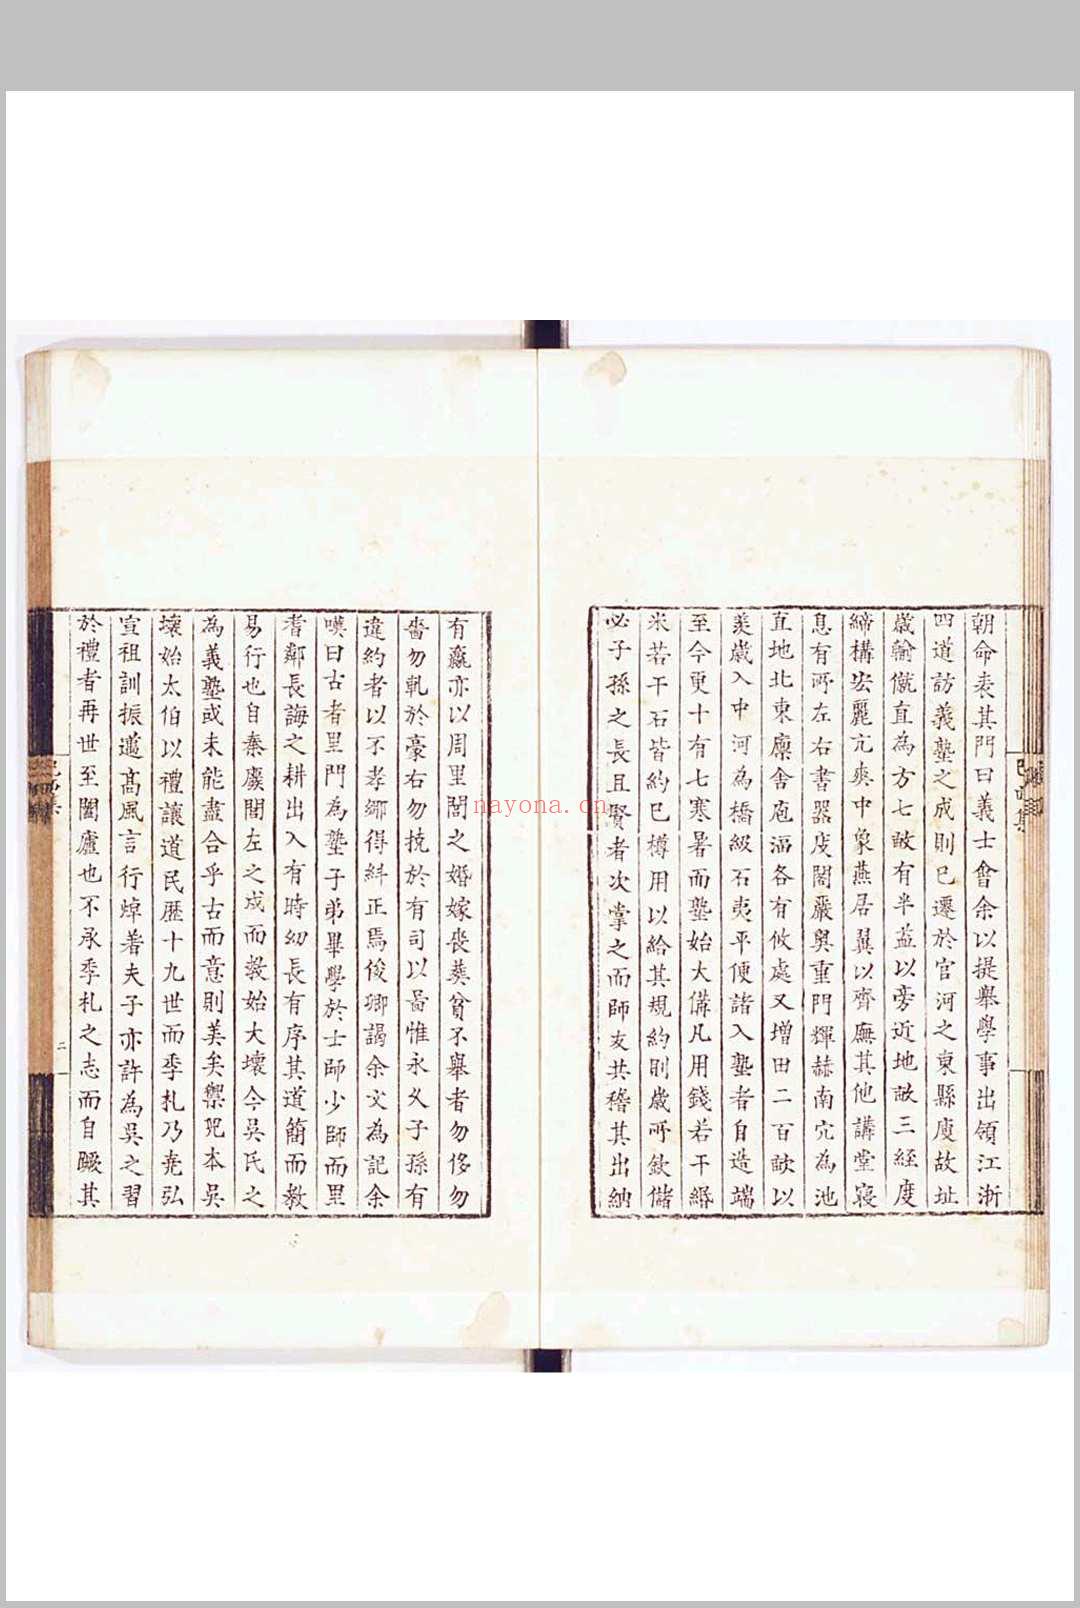 朝命表其門曰義士會余以提舉學事出領江浙
四道訪義塾之成則已遷於官河之東縣庾故址
歲輸僦直為方七畝有半益以旁近地畝三經度
締構宏麗亢爽中象燕居翼以齊廡其他講堂寢
息有所左右書器庋閣嚴奧重門輝赫南宂為池
直地北東廩舍庖湢各有攸處又增田二百畝以
羨歲入中河為橋級石夷平便諸入塾者自造端
至今更十有七寒暑而塾始大備凡用錢若干緡
米若干石皆約已樽用以給其規約則歲所飲儲
必子孫之長且賢者次掌之而師友共稽其出納
有羸亦以周里閭之婚嫁喪葬貧不舉者勿侈勿
嗇勿軋於豪右勿撓於有司以啚惟永父子孫有
違約者以不孝鄉得糾正焉俊卿謁余文為記余
嘆曰古者里門為塾子弟畢學於士師少師而里
耆鄰長誨之耕出入有時幼長有序其道簡而教
易行也自秦廢閭左之戍而教始大壞今吳氏之
為義塾或未能盡合乎古而意則美矣禦兒本吳
壤始太伯以禮讓道民歷十九世而季札乃堯弘
宣祖訓振邁高風言行焯著夫子亦許為吳之習
於禮者再世至闔廬也不承季札之志而自蹶其
二
nayona.cn